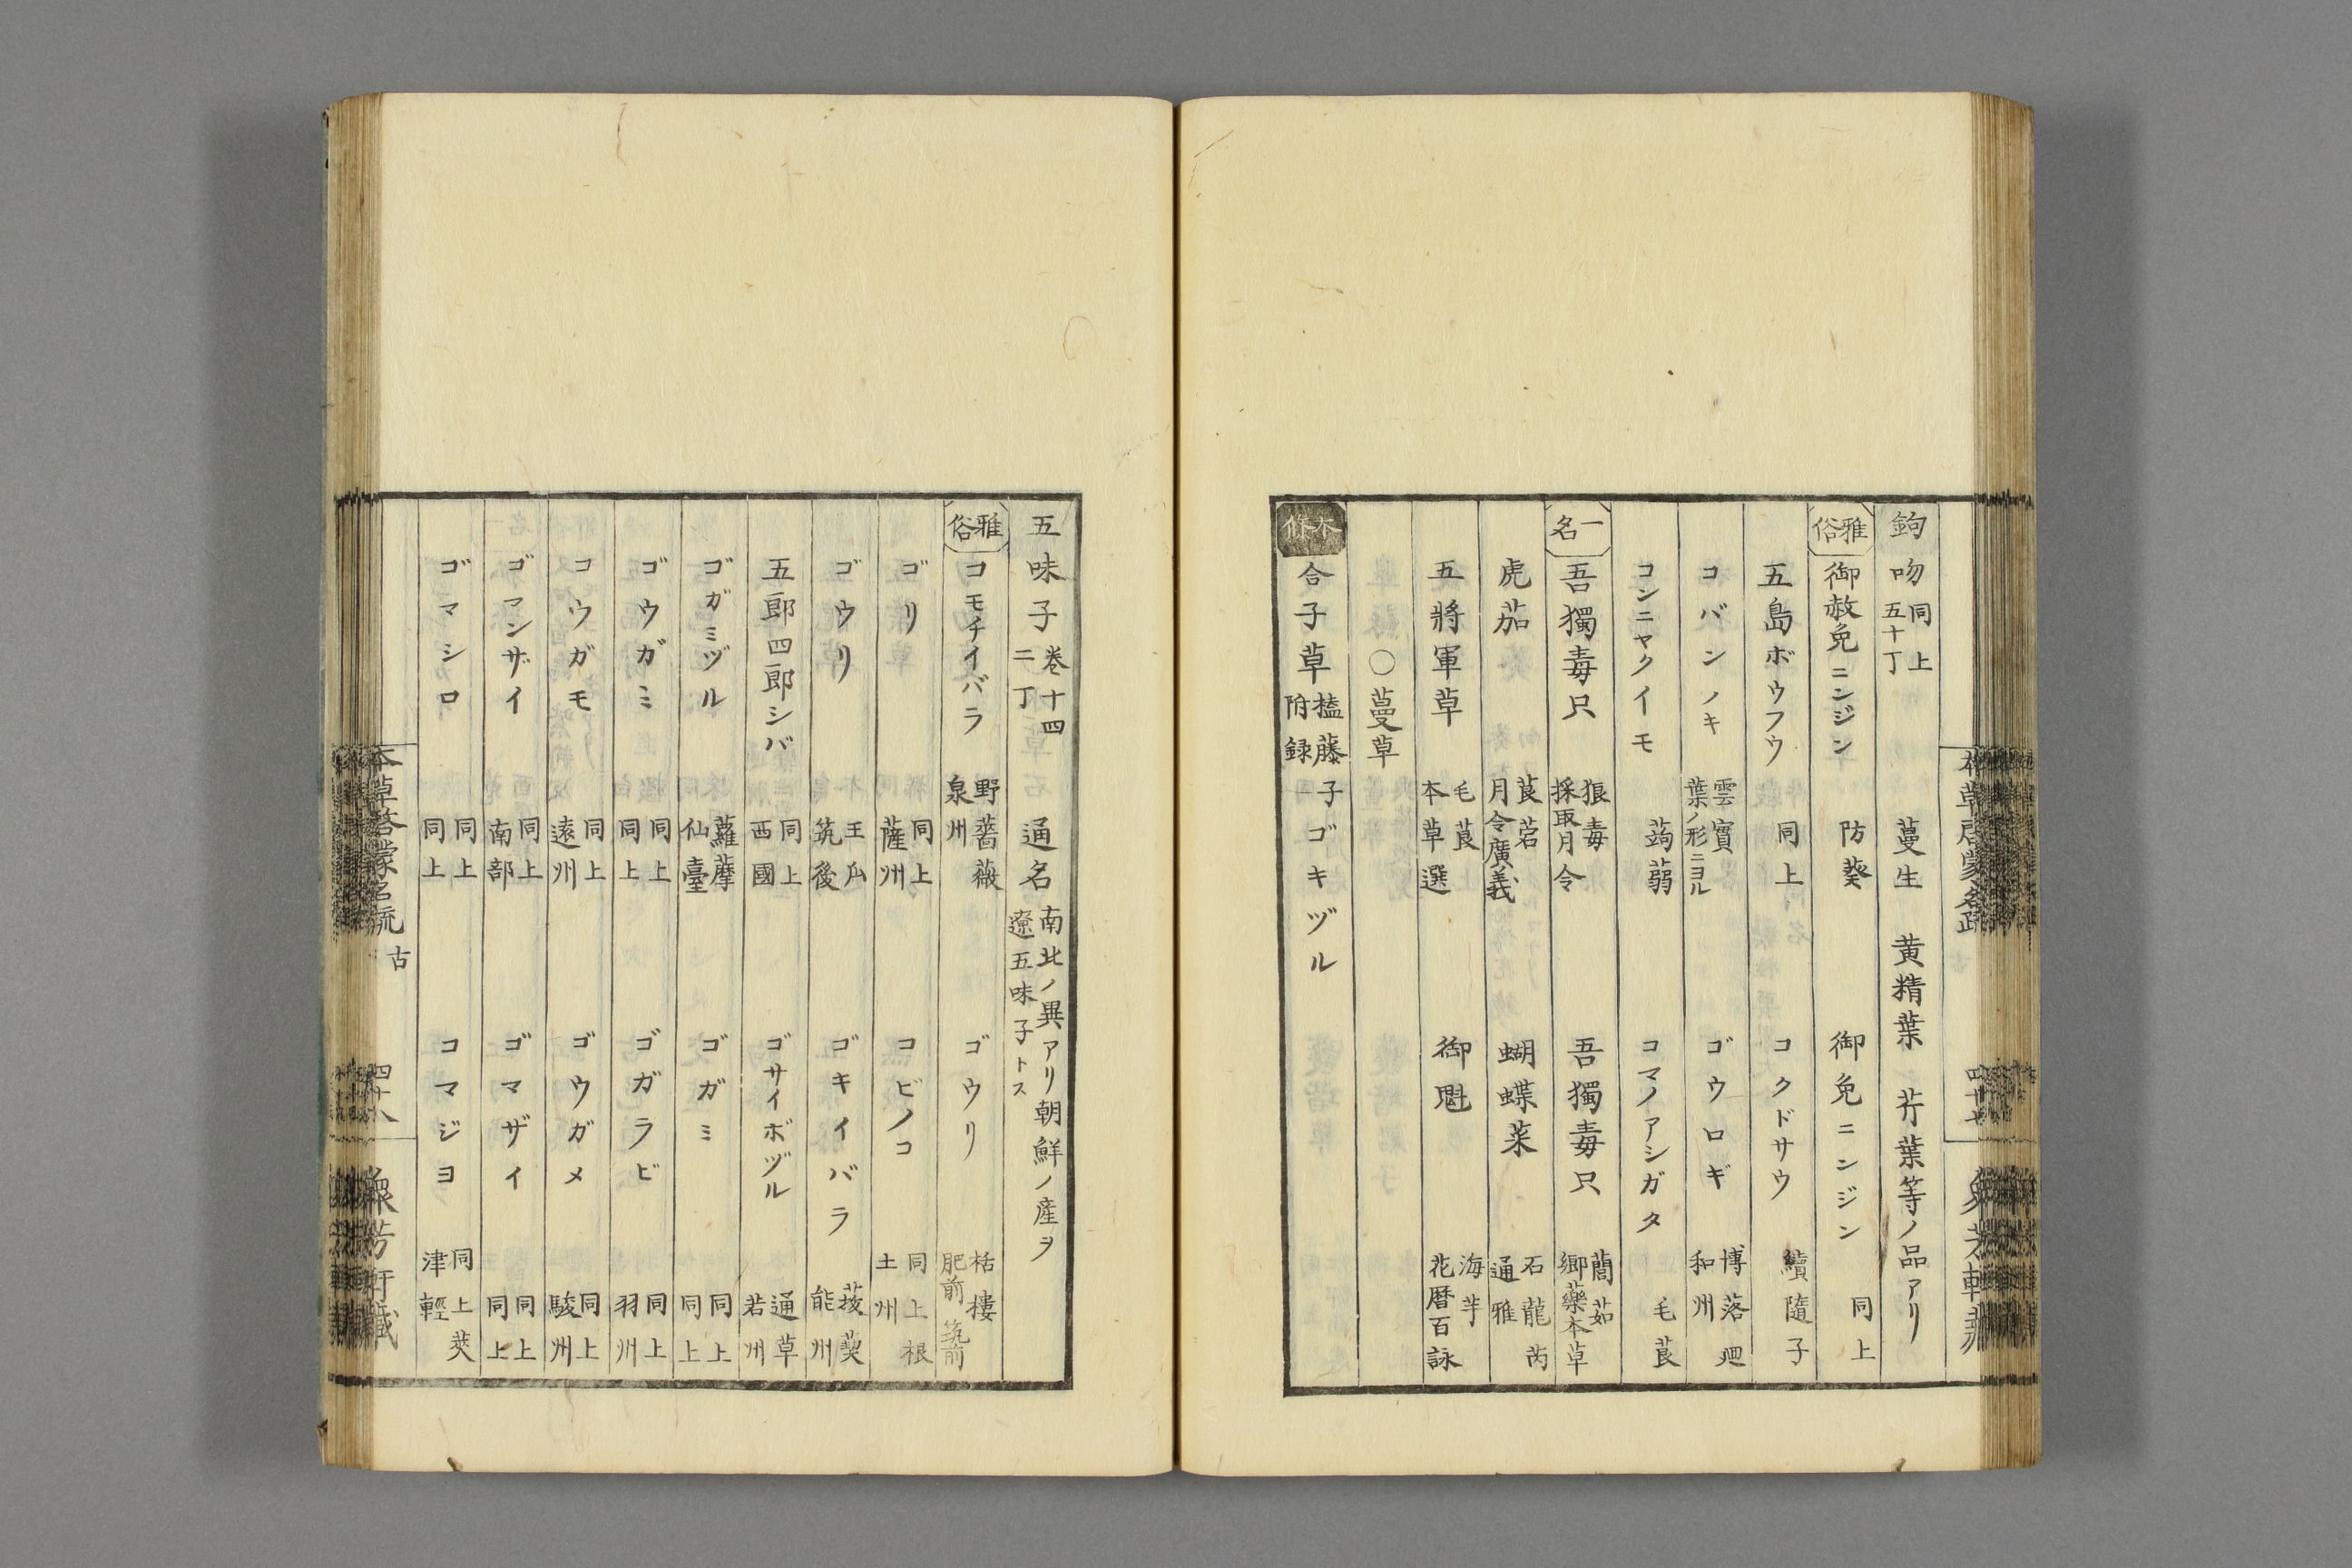 鉤吻 同上五十丁 蔓生 黄精葉 芹葉等ノ品アリ
雅俗 御赦免ニンジン 防葵 御免ニンジン 同上
五島ボウフウ 同上 コクドサウ 續隨子
コバンノキ 雲實葉ノ形ニヨル ゴウロギ 博落廻和州
コンニヤクイモ 蒟蒻 コマノアシガタ 毛茛
一名 吾獨毒只 狼毒採取月令 吾獨毒只 藺茹郷藥本草
虎茄 莨菪月令廣義 蝴蝶菜 石龍芮通雅
五將軍草 毛茛本草選 御魁 海芋花暦百詠
〇蔓草
本條 合子草 榼藤子附録 ゴキヅル
本草啓蒙名疏 四十七
五味子 卷十四二丁 通名 南北ノ異アリ朝鮮ノ産ヲ遼五味子トス
雅俗 コモチイバラ 野薔薇泉州 ゴウリ 栝樓肥前筑前
ゴリ 同上薩州 コビノコ 同上根土州
ゴウリ 王瓜筑後 ゴキイバラ 菝葜能州
五郎四郎シバ 同上西國 ゴサイボヅル 通草若州
ゴガミヅル 蘿藦仙臺 ゴガミ 同上同上
ゴウガミ 同上同上 ゴガラビ 同上羽州
コウガモ 同上遠州 ゴウガメ 同上駿州
ゴマンザイ 同上南部 ゴマザイ 同上同上
ゴマシロ 同上同上 コマジヨ 同上莢津輕
本草啓蒙名疏 古 四十八 衆芳軒藏